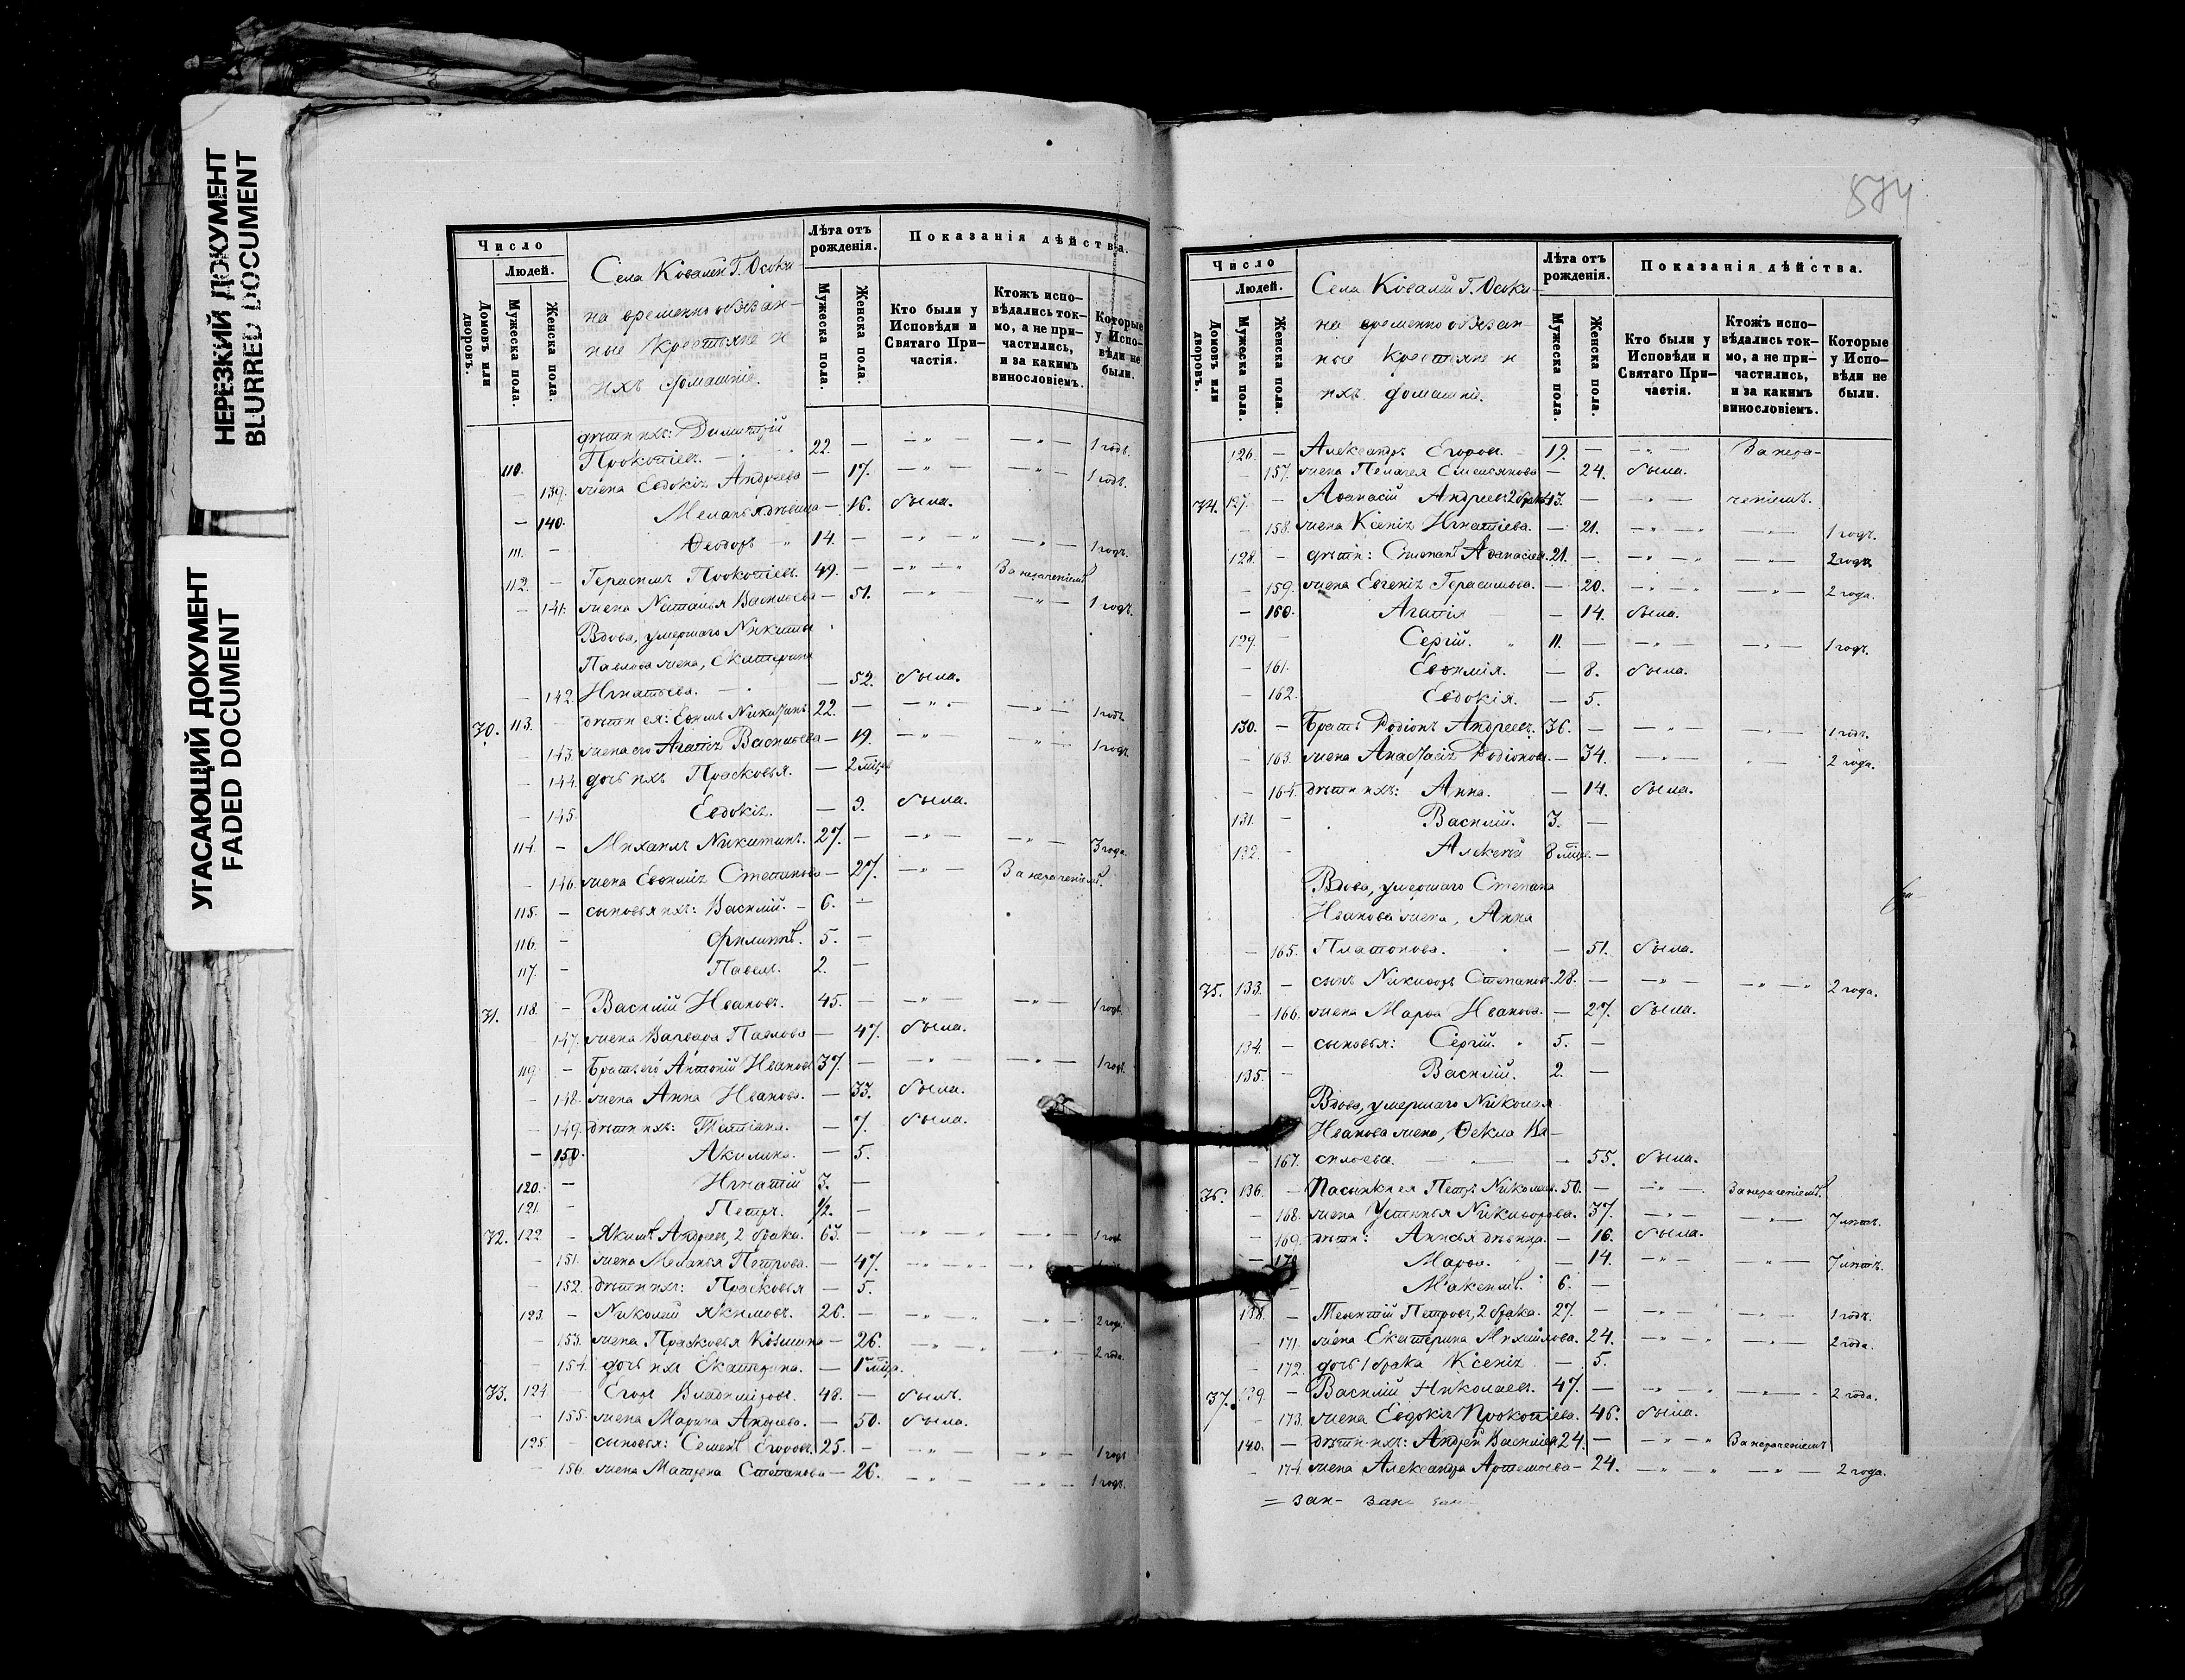 НЕРЕЗКИЙ ДОКУМЕНТ
BLURRED DOCUMENT
УГАСАЮЩИЙ ДОКУМЕНТ
FADED DOCUMENT
Число
Людей.
Домовъ или дворовъ.
Мужеска пола.
Женска пола.
Села Ковалей Г. Осоки-
на временно обязан-
ные крестьяне и
ихъ домашніе.
Лѣта отъ рожденія.
Мужеска пола.
Женска пола.
Показанія дѣйства.
Кто были у Исповѣди и Святаго Причастія.
Ктожъ исповѣдались токмо, а не причастились, и за какимъ винословіемъ.
Которые у Исповѣди не были.
дѣти ихъ: Димитрій
110. Прокопіевъ. 22. — — „ — — „ — 1 годъ.
— 139. жена Евдокія Андреева — 17. — „ — — „ — 1 годъ.
— 140. Меланья дѣвица — 16. была.
111. — Ѳеодоръ 14. — — „ — — „ — 1 годъ.
112. — Герасимъ Прокопіевъ. 49. — — „ — Занераченіемъ
— 141. жена Наталья Васильева — 51. — „ — „ — 1 годъ.
Вдова, умершаго Никиты
Павлова жена, Екатерина
— 142. Игнатьева. — 52. была.
70. 113. — дѣти ея: Евѳимъ Никитинъ 22. — — „ — — „ — 1 годъ
— 143. жена его Агапія Васильева — 19. — „ — — „ — 1 годъ
— 144. дочь ихъ Прасковья. — 2 мѣся
— 145. Евдокія. — 9. была.
114. — Михаилъ Никитинъ. 27. — — „ — — „ — 3 года.
— 146. жена Евѳимія Степанова — 27. — „ — Занераченіемъ.
115. — сыновья ихъ: Василій. — 6. —
116. — Филиппъ. 5. —
117. — Павелъ. 2. —
71. 118. — Василій Ивановъ. 45. — — „ — — „ — 1 годъ.
— 147. жена Варвара Павлова — 47. была.
119. — Братъ его Антоній Ивановъ 37. — — „ — — „ — 1 годъ.
— 148. жена Анна Иванова. — 33. была.
— 149. дѣти ихъ: Татіана. — 7. была.
— 150. Акилина. — 5.
120. — Игнатій 3. —
121. — Петръ. 1/2. —
72. 122 — Якимъ Андреевъ, 2 брака. 63. — — „ — — „ — 1 годъ
— 151. жена Меланья Петрова. — 47. — „ —
— 152. дѣти ихъ: Прасковья — 5.
123. — Николай Якимовъ. 26. — — „ — — „ — 2 года.
— 153. жена Прасковья Козьмина — 26. — „ — — „ — 2 года.
— 154. дочь ихъ Екатерина. — 1 мѣся.
73. 124 — Егоръ Владиміровъ. 48. — былъ.
— 155. жена Марина Андреева. — 50. была.
125. — сыновья: Семенъ Егоровъ. 25. — — „ — — „ — 1 годъ
— 156. жена Матрена Степанова — 26. — „ — — „ — 1 годъ.
574
Число
Людей.
Домовъ или дворовъ.
Мужеска пола.
Женска пола.
Села Ковалей Г. Осоки-
на временно обязан-
ные крестьяне и
ихъ домашніе.
Лѣта отъ рожденія.
Мужеска пола.
Женска пола.
Показанія дѣйства.
Кто были у Исповѣди и Святаго Причастія.
Ктожъ исповѣдались токмо, а не причастились, и за какимъ винословіемъ.
Которые у Исповѣди не были.
126. — Александръ Егоровъ. 19. — — „ — Занера-
— 157. жена Пелагея Емельянова — 24. была.
74. 127. — Аѳанасій Андреевъ 2 брака 43. — — „ — ченіемъ.
— 158. жена Ксенія Игнатіева. — 21. — „ — — „ — 1 годъ.
128. — дѣти: Степанъ Аѳанасіевъ. 21. — — „ — — „ — 2 года
— 159. жена Евгенія Герасимова. — 20. — „ — — „ — 2 года.
— 160. Агапія — 14. была.
129. — Сергій. 11. — — „ — — „ — 1 годъ.
— 161. Евѳимія. — 8. была.
— 162. Евдокія. — 5.
130. — Братъ Родіонъ Андреевъ. 36. — — „ — — „ — 1 годъ.
— 163. жена Анастасія Родіонова. — 34. — „ — „ 2 года.
— 164. дѣти ихъ: Анна. — 14. была.
131. — Василій. 3. —
132. — Алексѣй 8 мѣся. —
Вдова, умершаго Степана
Иванова жена, Анна
— 165. Платонова. — 51. была.
75. 133. — сынъ Никифоръ Степановъ. 28. — — „ — — „ — 2 года.
— 166. жена Марѳа Иванова. — 27. была.
134. — сыновья: Сергій. 5. —
135. — Василій. 2. —
Вдова, умершаго Николая
Иванова жена, Ѳекла Ва-
— 167. сильева. — 55. была.
76. 136. — Пасынки ея Петръ Николаевъ. 50. — — „ — Занераченіемъ.
— 168. жена Устинья Никифорова. 37. — „ — — „ — 7 лѣтъ.
— 169. дѣти: Анисья дѣвица. — 16. была.
— 170 Марѳа. — 14. — „ — — „ — 7 лѣтъ.
— Максимъ. 6. —
138. — Терентій Петровъ, 2 брака. 27. — — „ — — „ — 1 годъ.
— 171. жена Екатерина Михайлова. 24. — „ — — „ — 2 года.
— 172. дочь 1 брака Ксенія — 5.
77. 139 — Василій Николаевъ. 47. — — „ — — „ — 2 года.
— 173. жена Евдокія Прокопіева. 46. была.
140. — дѣти ихъ: Андрей Васильевъ 24. — — „ — Занераченіемъ
— 174. жена Александра Артемьева — 24. — „ — — „ — 2 года.